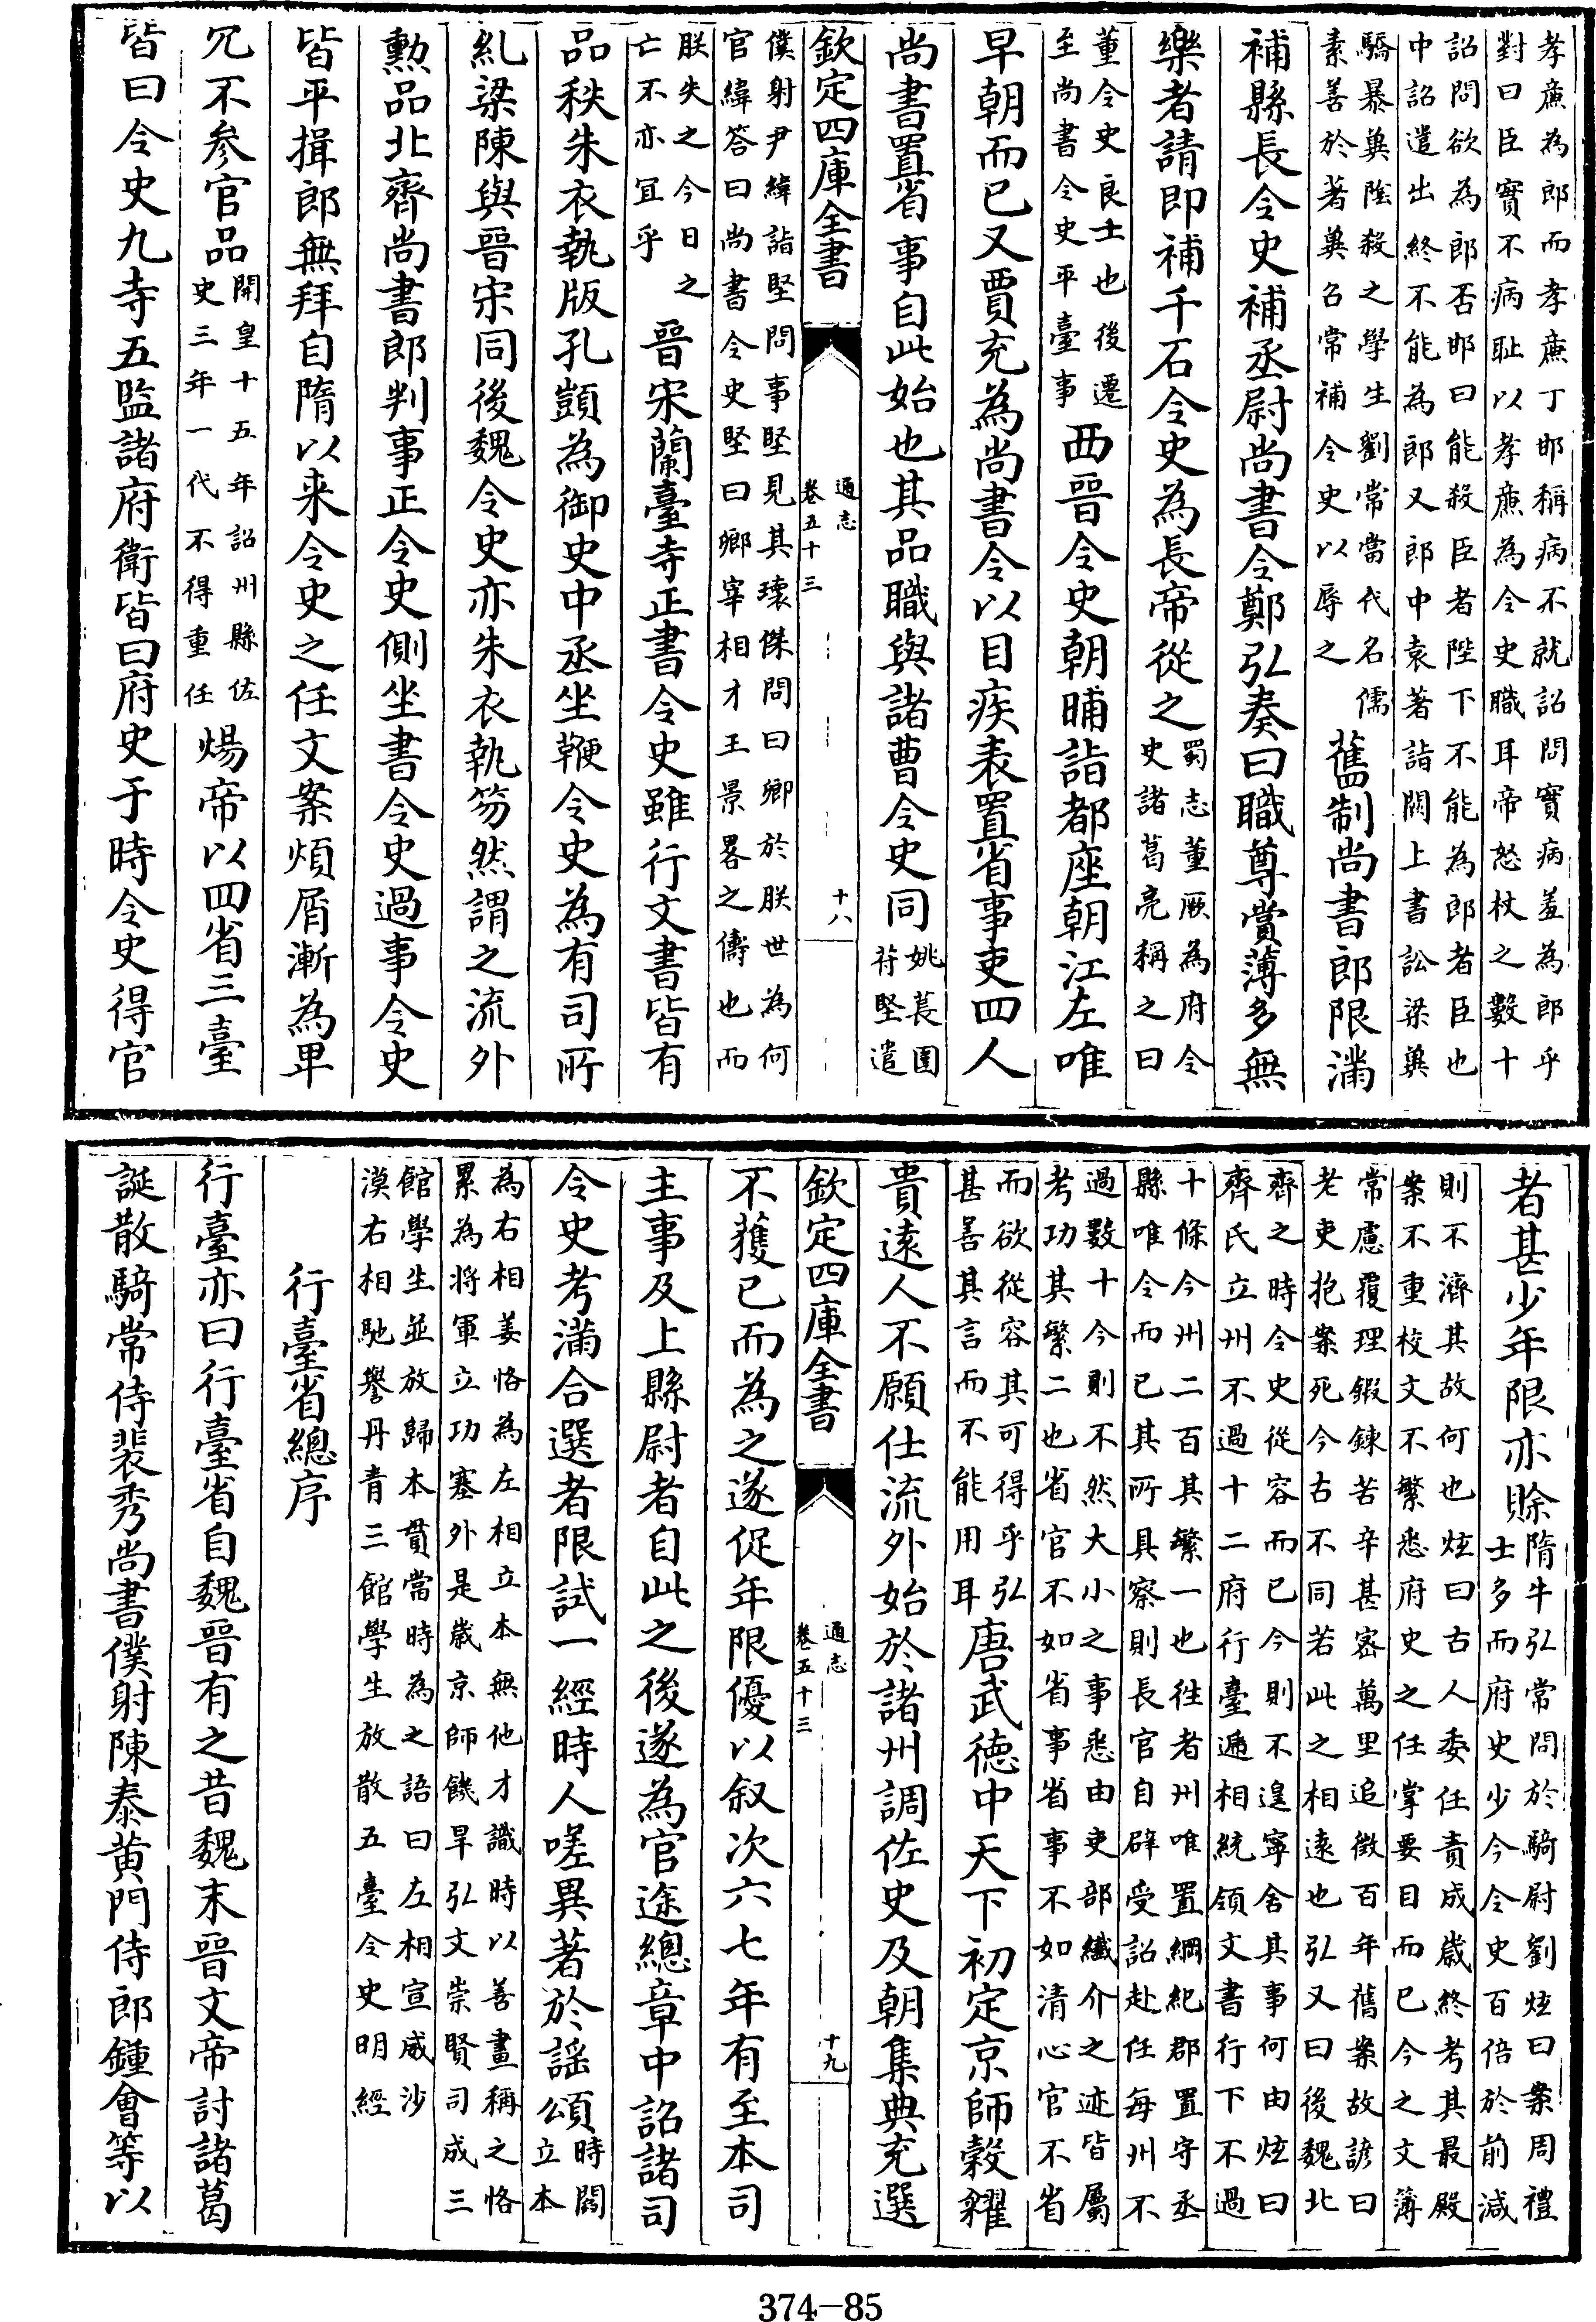 孝廉為郎而孝廉丁邯稱病不就詔問實病羞為郎乎
對曰臣實不病耻以孝廉為令史職耳帝怒杖之數十
詔問欲為郎否邯曰能殺臣者陛下不能為郎者臣也
中詔遣出終不能為郎又郎中袁著詣闕上書訟梁冀
驕暴冀隂殺之學生劉常當代名儒
素善於著冀召常補令史以辱之
舊制尚書郎限滿
補縣長令史補丞尉尚書令鄭弘奏曰職尊賞薄多無
樂者請即補千石令史為長帝從之
蜀志董厥為府令
史諸葛亮稱之曰
董令史良士也後遷
至尚書令史平臺事
西晉令史朝晡詣都座朝江左唯
早朝而已又賈充為尚書令以目疾表置省事吏四人
尚書置省事自此始也其品職與諸曹令史同
姚萇圍
苻堅遣
欽定四庫全書
通志
卷五十三
十八
僕射尹緯詣堅問事堅見其瓌傑問曰卿於朕世為何
官緯答曰尚書令史堅曰卿宰相才王景畧之儔也而
朕失之今日之
亡不亦宜乎
晉宋蘭臺寺正書令史雖行文書皆有
品秩朱衣執版孔顗為御史中丞坐鞭令史為有司所
糺梁陳與晉宋同後魏令史亦朱衣執笏然謂之流外
勲品北齊尚書郎判事正令史側坐書令史過事令史
皆平揖郎無拜自隋以来令史之任文案煩屑漸為卑
冗不參官品
開皇十五年詔州縣佐
史三年一代不得重任
煬帝以四省三臺
皆曰令史九寺五監諸府衛皆曰府史于時令史得官
者甚少年限亦賒
隋牛弘常問於騎尉劉炫曰案周禮
士多而府史少今令史百倍於前減
則不濟其故何也炫曰古人委任責成歲終考其最殿
案不重校文不繁悉府史之任掌要目而已今之文簿
常慮覆理鍛鍊苦辛甚密萬里追徵百年舊案故諺曰
老吏抱案死今古不同若此之相遠也弘又曰後魏北
齊之時令史從容而已今則不遑寧舍其事何由炫曰
齊氏立州不過十二府行臺遞相統領文書行下不過
十條今州二百其繁一也往者州唯置綱紀郡置守丞
縣唯令而已其所具察則長官自辟受詔赴任每州不
過數十今則不然大小之事悉由吏部纖介之迹皆屬
考功其繁二也省官不如省事省事不如清心官不省
而欲從容其可得乎弘
甚善其言而不能用耳
唐武徳中天下初定京師穀糴
貴遠人不願仕流外始於諸州調佐史及朝集典充選
欽定四庫全書
通志
卷五十三
十九
不獲已而為之遂促年限優以叙次六七年有至本司
主事及上縣尉者自此之後遂為官途總章中詔諸司
令史考滿合選者限試一經時人嗟異著於謡頌
時閻
立本
為右相姜恪為左相立本無他才識時以善畫稱之恪
累為将軍立功塞外是歲京師饑旱弘文崇賢司成三
館學生並放歸本貫當時為之語曰左相宣威沙
漠右相馳譽丹青三館學生放散五臺令史明經
行臺省總序
行臺亦曰行臺省自魏晉有之昔魏末晉文帝討諸葛
誕散騎常侍裴秀尚書僕射陳泰黄門侍郎鍾會等以
374-85